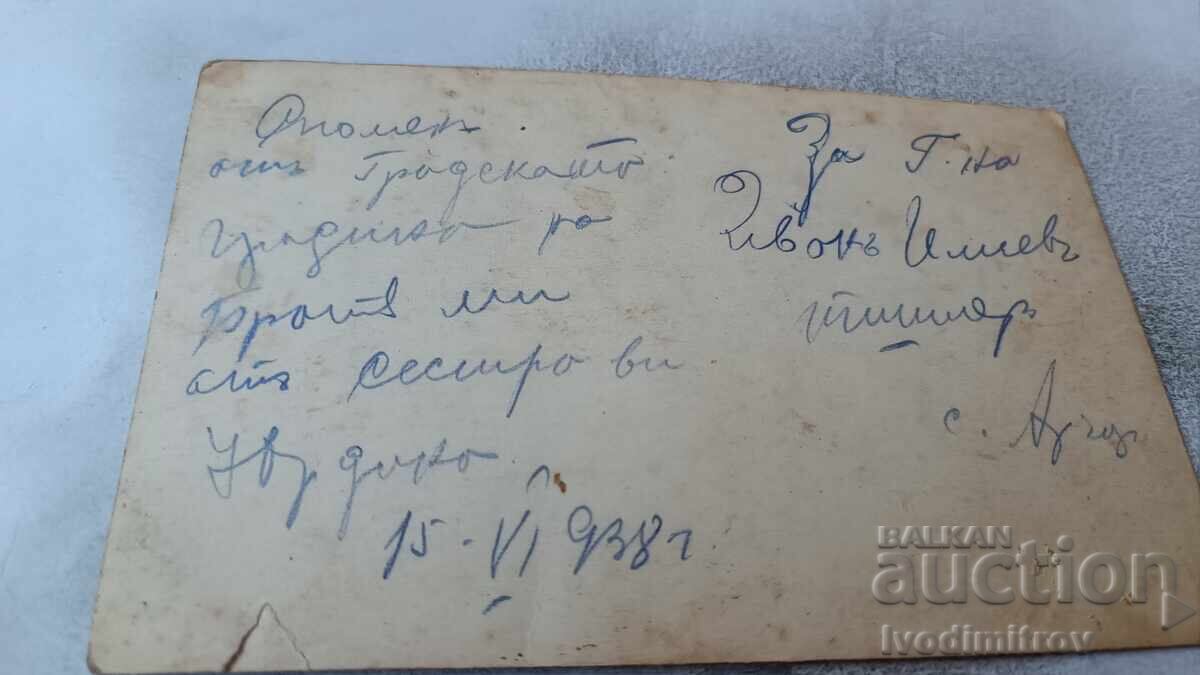 Споменъ
отъ Градската
градина на
братъ ми
отъ сестра ви
15-VI 938 г
За Г-на
Иванъ Илиевъ
с.
BALKAN
auction
Ivodimitrov